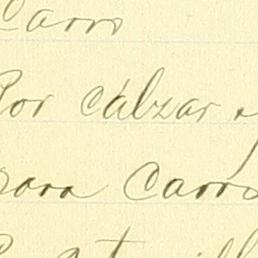 Carro
Por cálzar y
para Carro